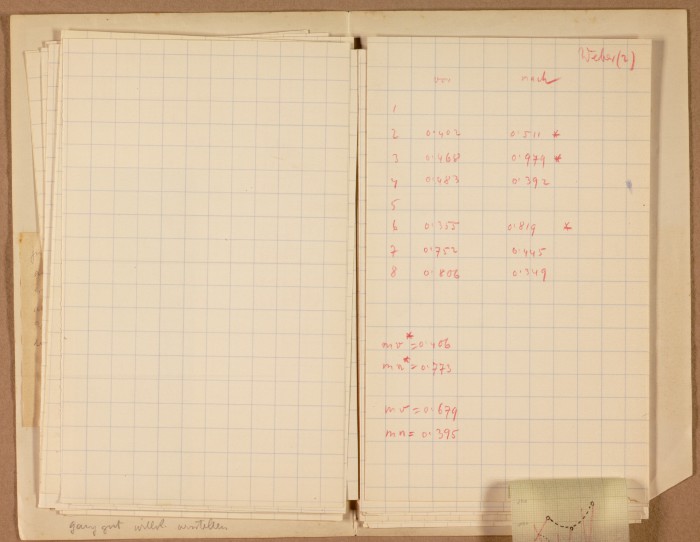 Weber (2)
vor nach
1
2 0.402 0.511 *
3 0.468 0.979 *
4 0.483 0.392
5
6 0.355 0.819 *
7 0.752 0.445
8 0.806 0.349
mv* = 0.406
mn* = 0.773
mv = 0.679
mn = 0.395
ganz gut